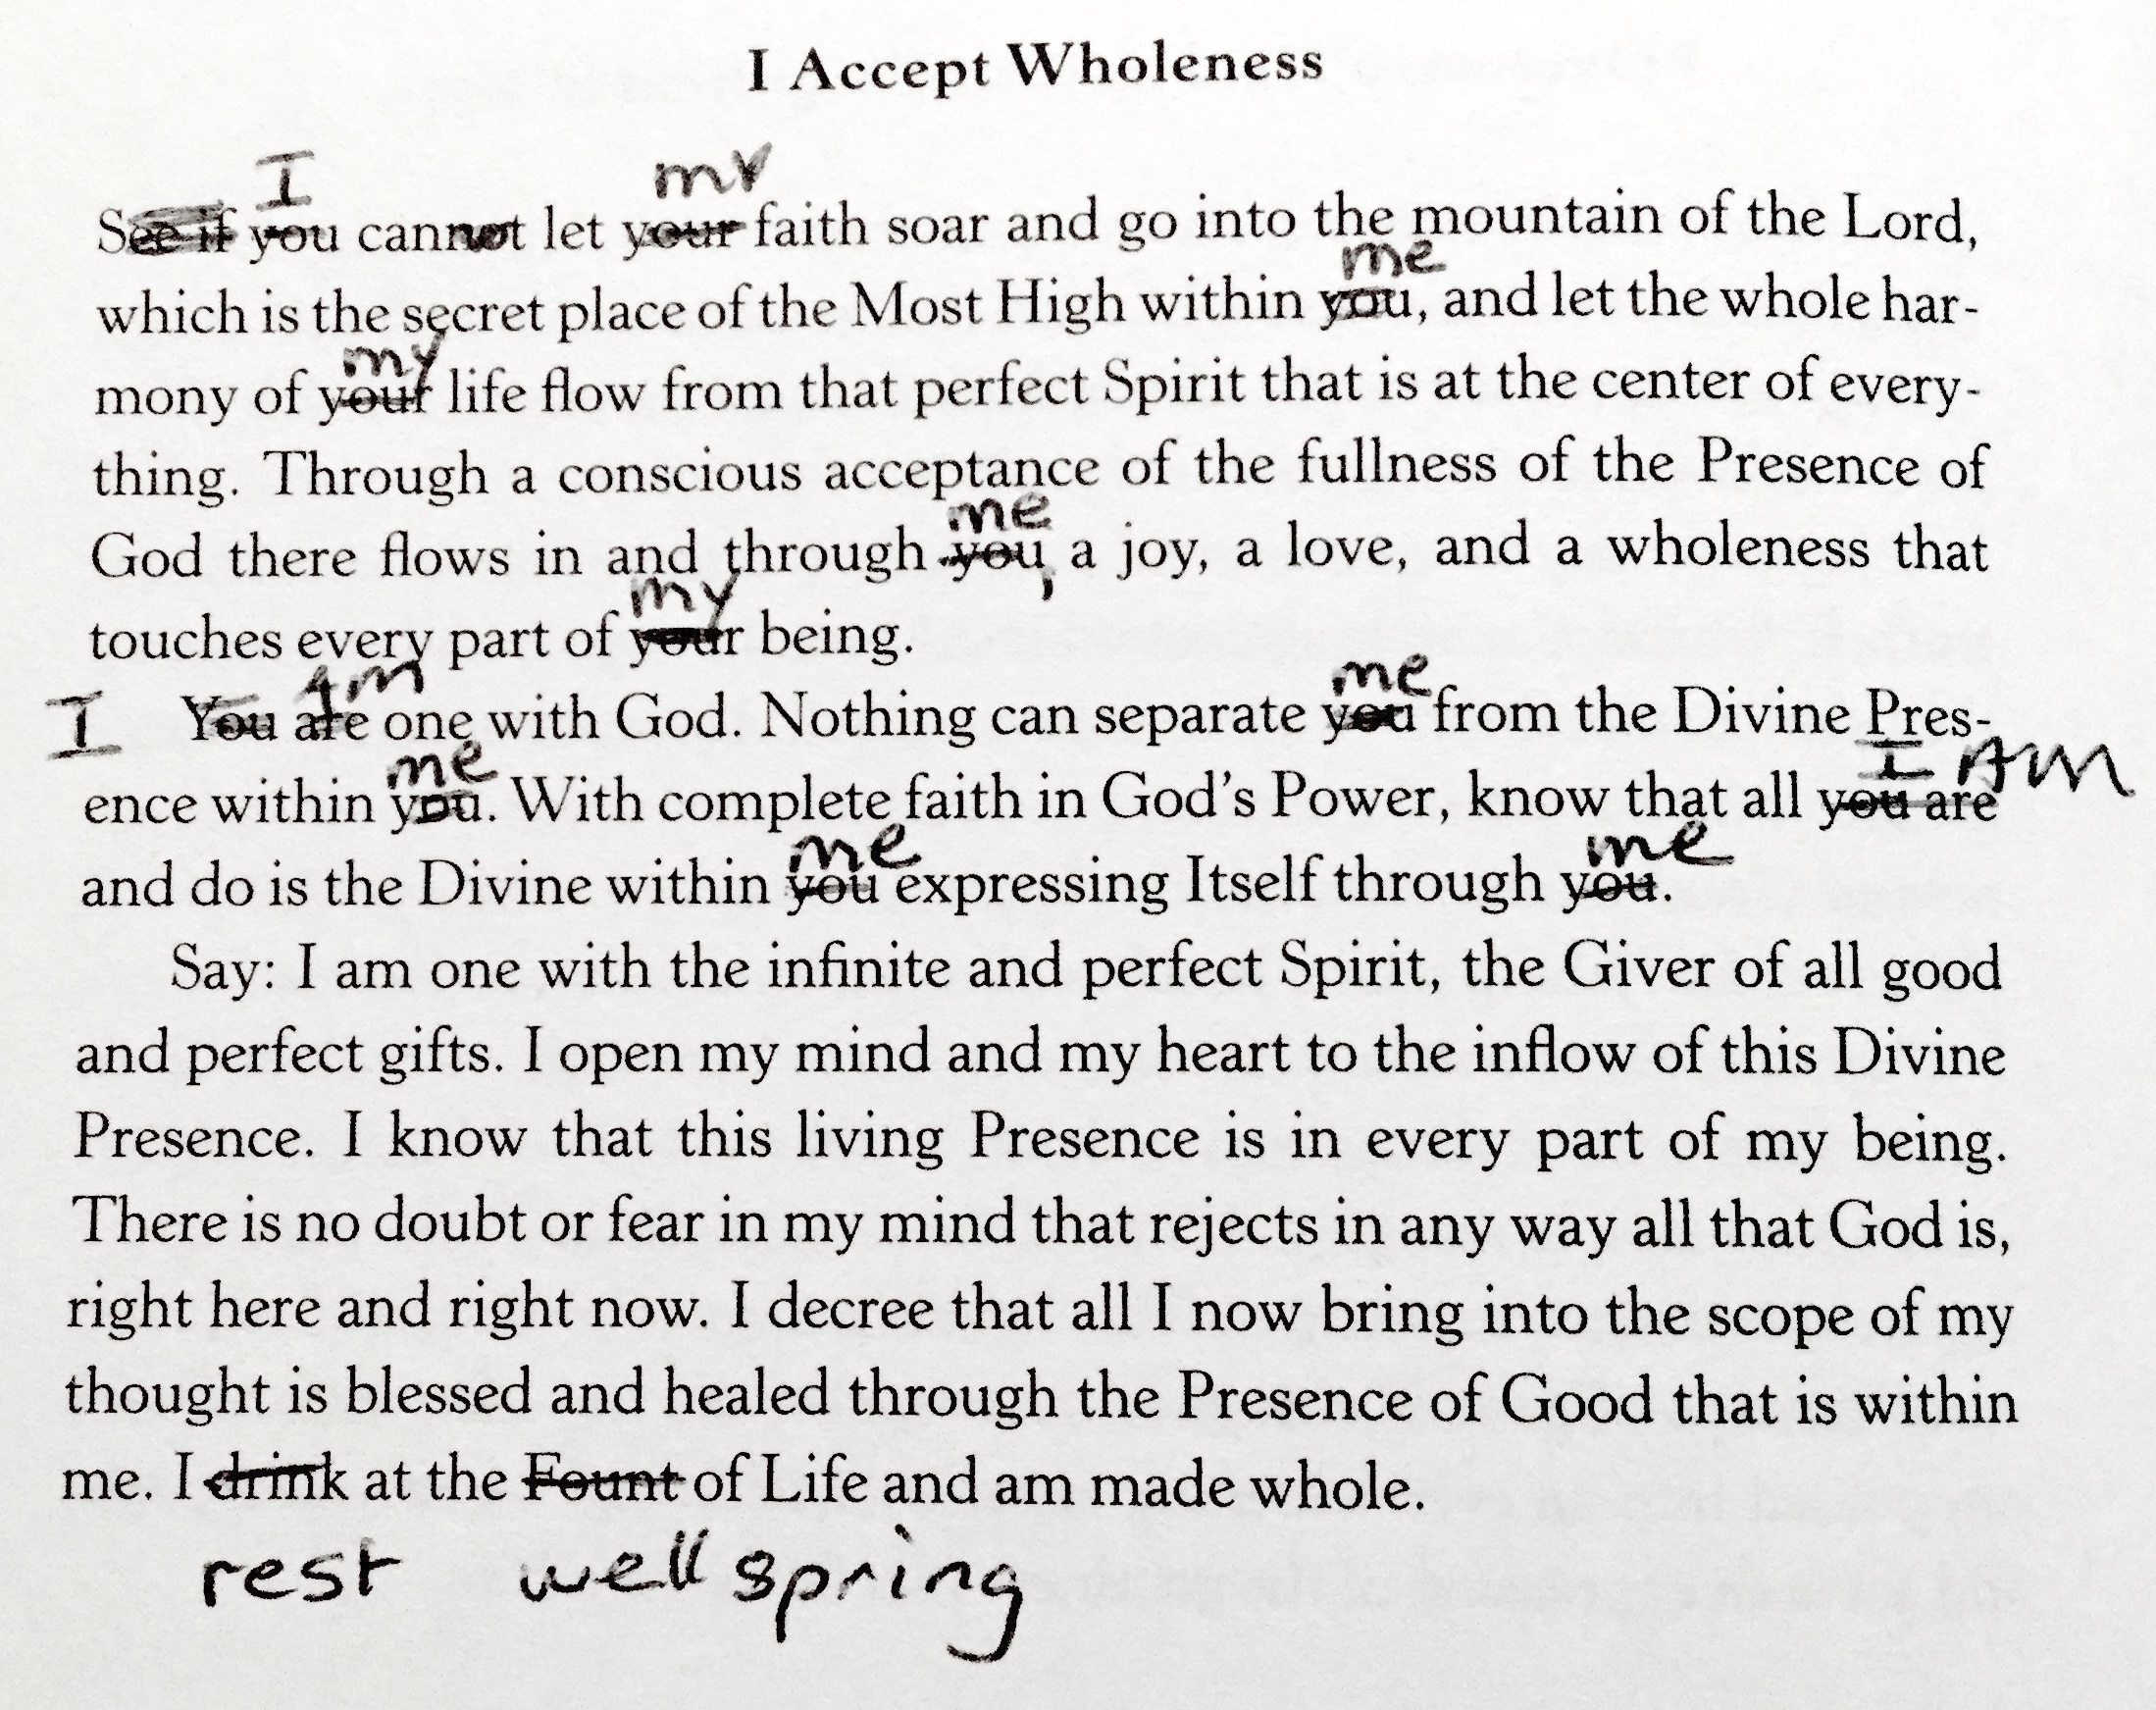 I Accept Wholeness
I my
See if you cannot let your faith soar and go into the mountain of the Lord,
me
which is the secret place of the Most High within you, and let the whole har-
my
mony of your life flow from that perfect Spirit that is at the center of every-
thing. Through a conscious acceptance of the fullness of the Presence of
me
God there flows in and through you, a joy, a love, and a wholeness that
my
touches every part of your being.
Am me
I You are one with God. Nothing can separate you from the Divine Pres-
me I AM
ence within you. With complete faith in God's Power, know that all you are
me me
and do is the Divine within you expressing Itself through you.
Say: I am one with the infinite and perfect Spirit, the Giver of all good
and perfect gifts. I open my mind and my heart to the inflow of this Divine
Presence. I know that this living Presence is in every part of my being.
There is no doubt or fear in my mind that rejects in any way all that God is,
right here and right now. I decree that all I now bring into the scope of my
thought is blessed and healed through the Presence of Good that is within
me. I drink at the Fount of Life and am made whole.
rest well spring